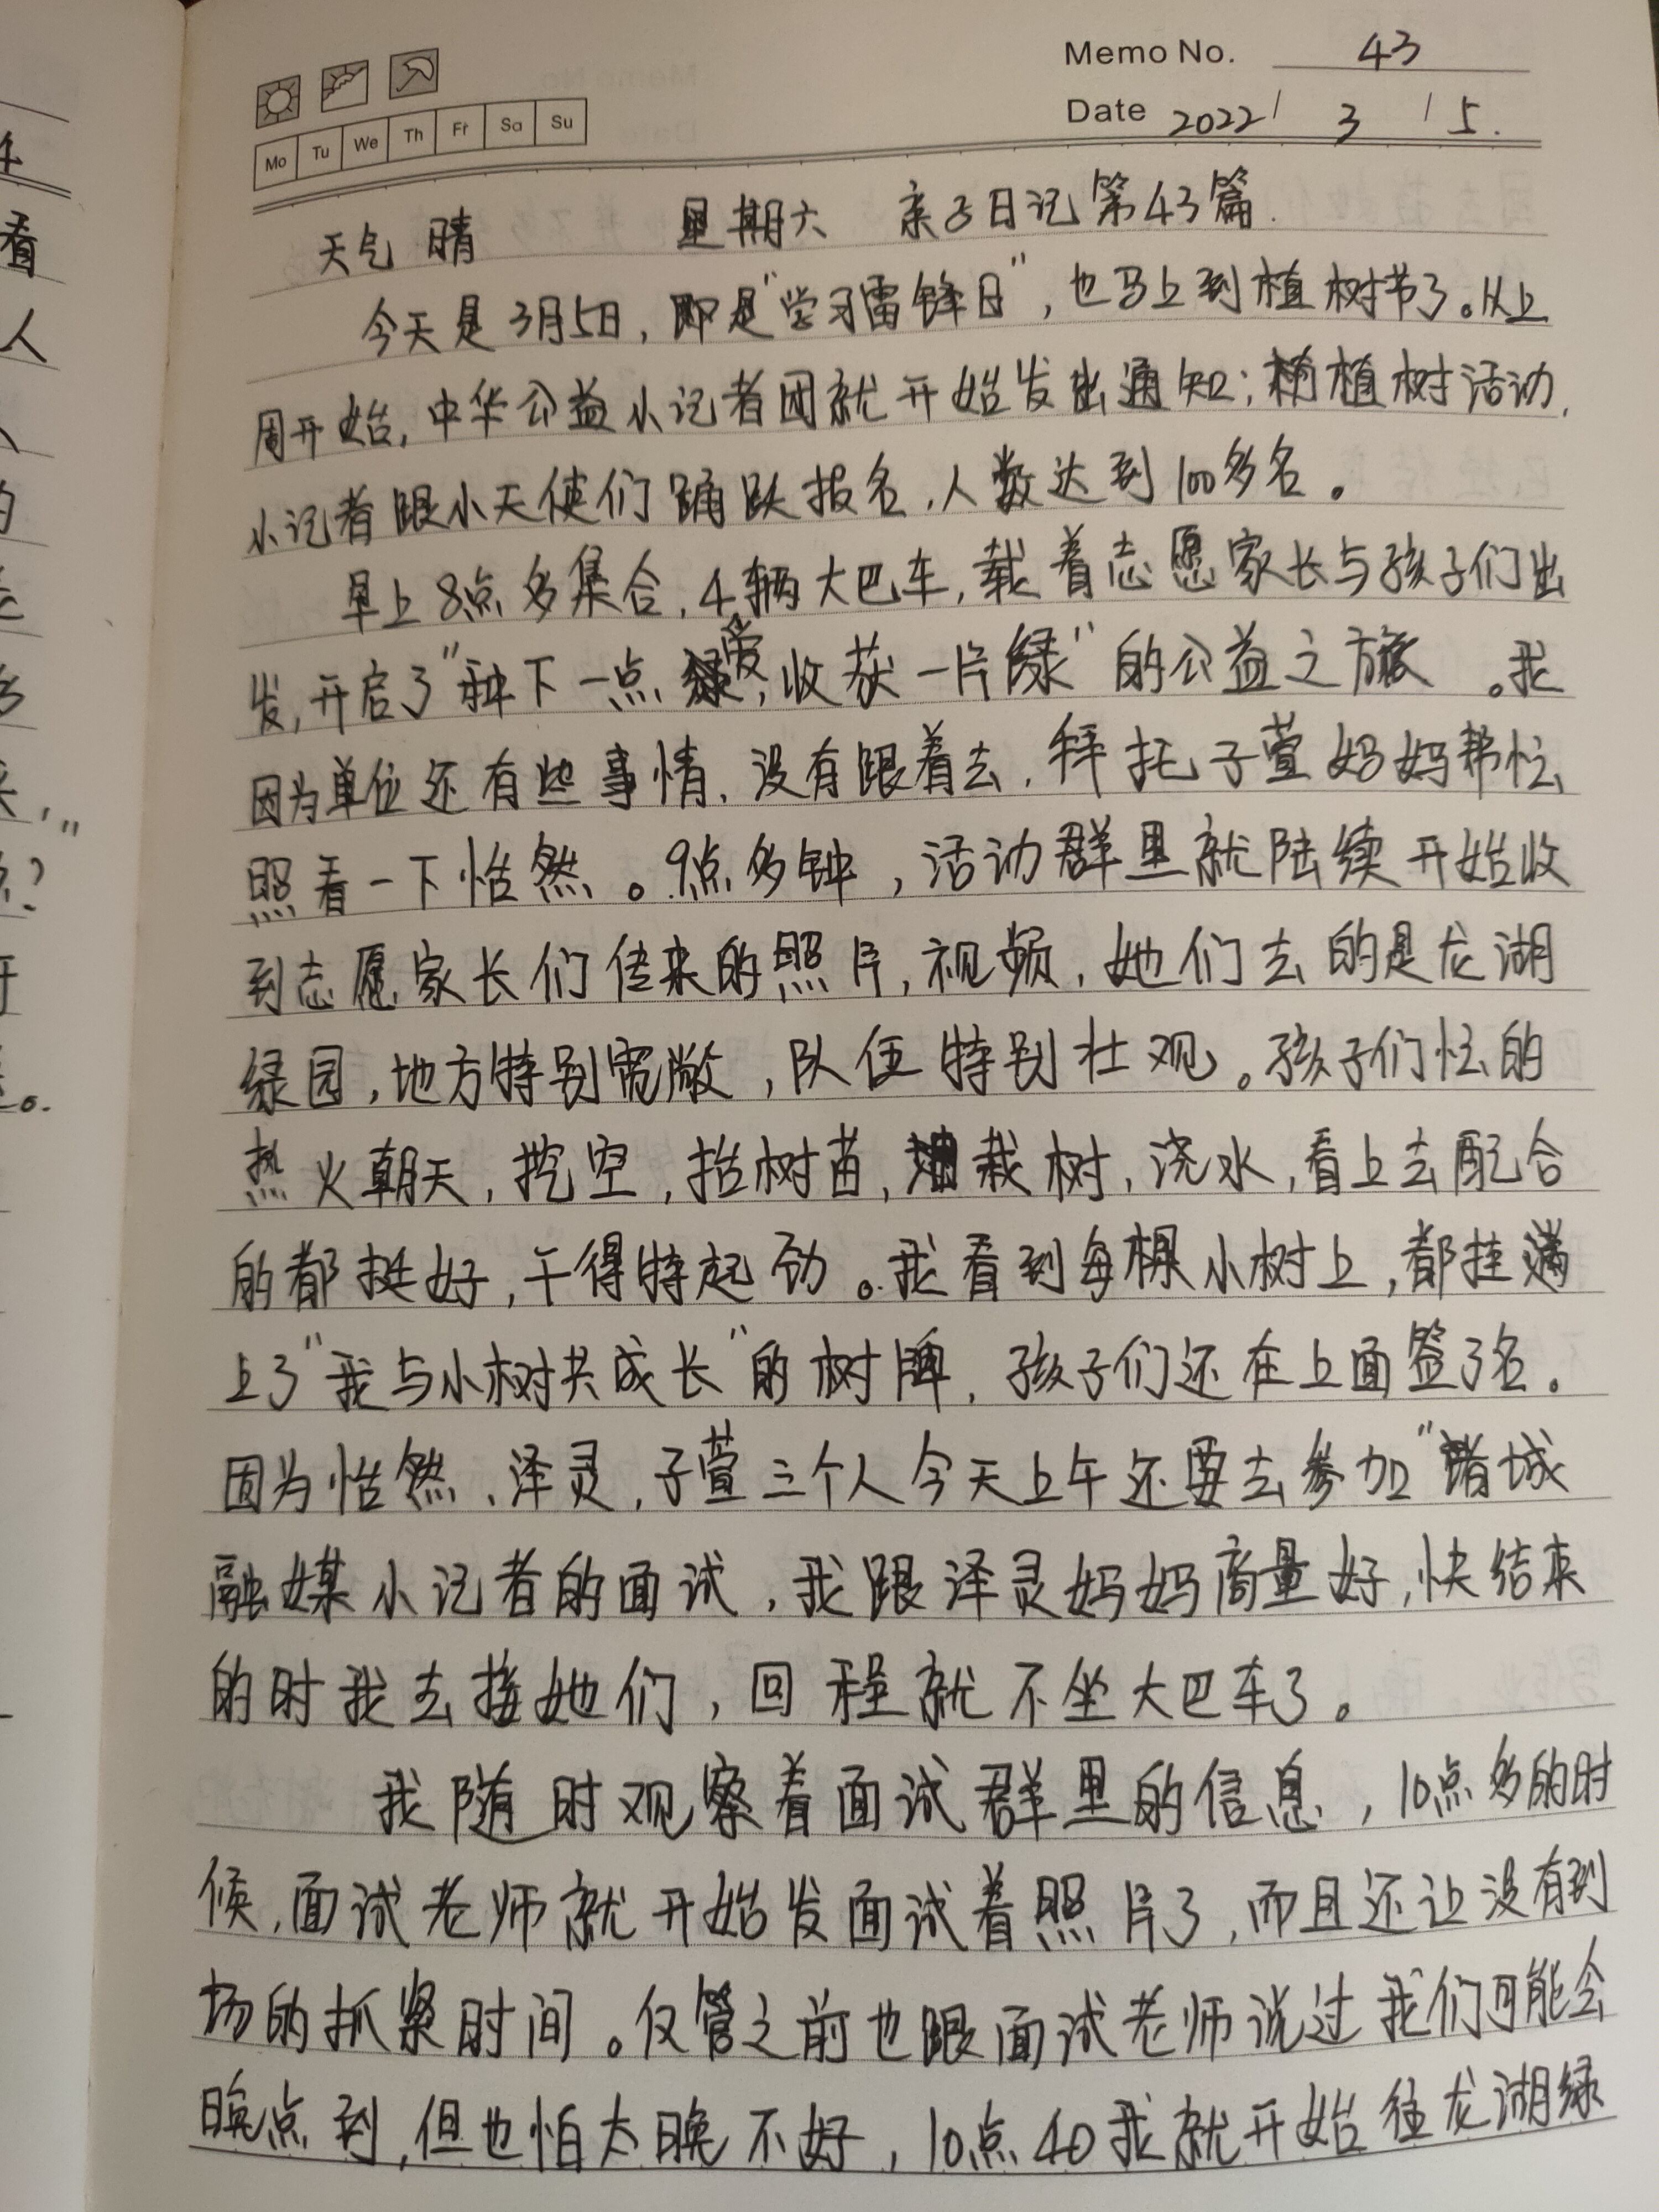 Memo No. 43
Mo Tu We Th Fr Sa Su
Date 2022 / 3 / 5.
天气 晴 星期六 亲子日记第43篇.
今天是3月5日,即是“学习雷锋日”,也马上到植树节了。从上
周开始,中华公益小记者团就开始发出通知;植树活动,
小记者跟小天使们踊跃报名,人数达到100多名。
早上8点多集合,4辆大巴车,载着志愿家长与孩子们出
发,开启了“种下一点爱,收获一片绿”的公益之旅。我
因为单位还有些事情,没有跟着去,拜托子萱妈妈帮忙
照看一下恬然。9点多钟,活动群里就陆续开始收
到志愿家长们传来的照片,视频,她们去的是龙湖
绿园,地方特别宽敞,队伍特别壮观。孩子们忙的
热火朝天,挖空,抬树苗,栽树,浇水,看上去配合
的都挺好,干得特起劲。我看到每棵小树上,都挂满
上了“我与小树共成长”的树牌,孩子们还在上面签了名。
因为恬然、泽灵,子萱三个人今天上午还要去参加“诸城
融媒小记者的面试,我跟泽灵妈妈商量好,快结束
的时我去接她们,回程就不坐大巴车了。
我随时观察着面试群里的信息,10点多的时
候,面试老师就开始发面试着照片了,而且还让没有到
场的抓紧时间。仅管之前也跟面试老师说过我们可能会
晚点到,但也怕太晚不好,10点40我就开始往龙湖绿
看
人